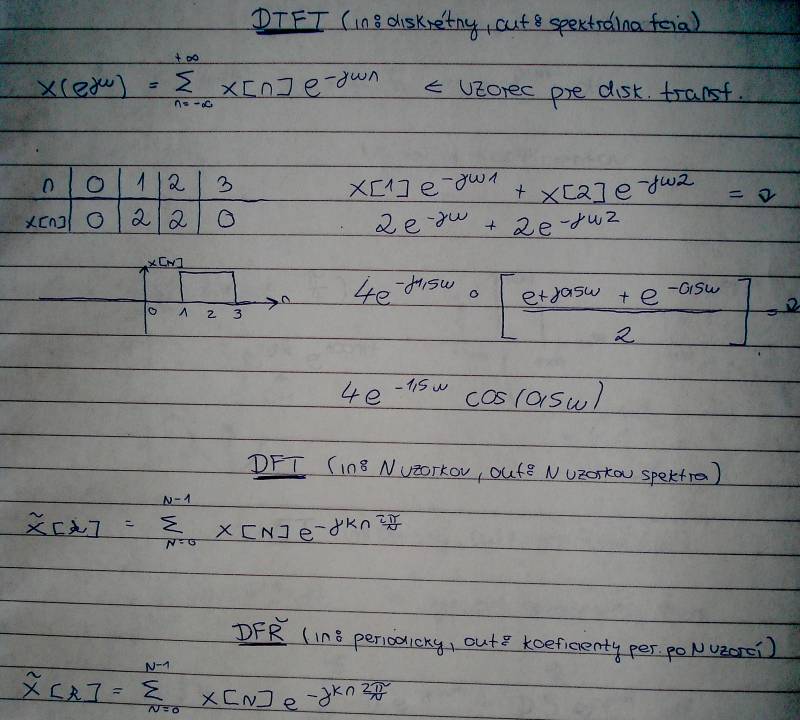 DTFT (in: diskrétny, out: spektrálna fcia)
X(e^jω) = Σ_{n=-∞}^{+∞} x[n] e^{-jωn} ← vzorec pre disk. transf.
n | 0 | 1 | 2 | 3
x[n] | 0 | 2 | 2 | 0
x[1] e^{-jω1} + x[2] e^{-jω2} =
2e^{-jω} + 2e^{-jω2}
x[N]
n
0 1 2 3
4e^{-j1,5ω} · [ (e^{+j0,5ω} + e^{-0,5ω}) / 2 ] =
4e^{-1,5ω} cos(0,5ω)
DFT (in: N vzorkov, out: N vzorkov spektra)
X̃[k] = Σ_{N=0}^{N-1} x[N] e^{-jkn 2π/N}
DFŘ (in: periodicky, out: koeficienty per. po N vzorcí)
X̃[k] = Σ_{N=0}^{N-1} x[N] e^{-jkn 2π/N}